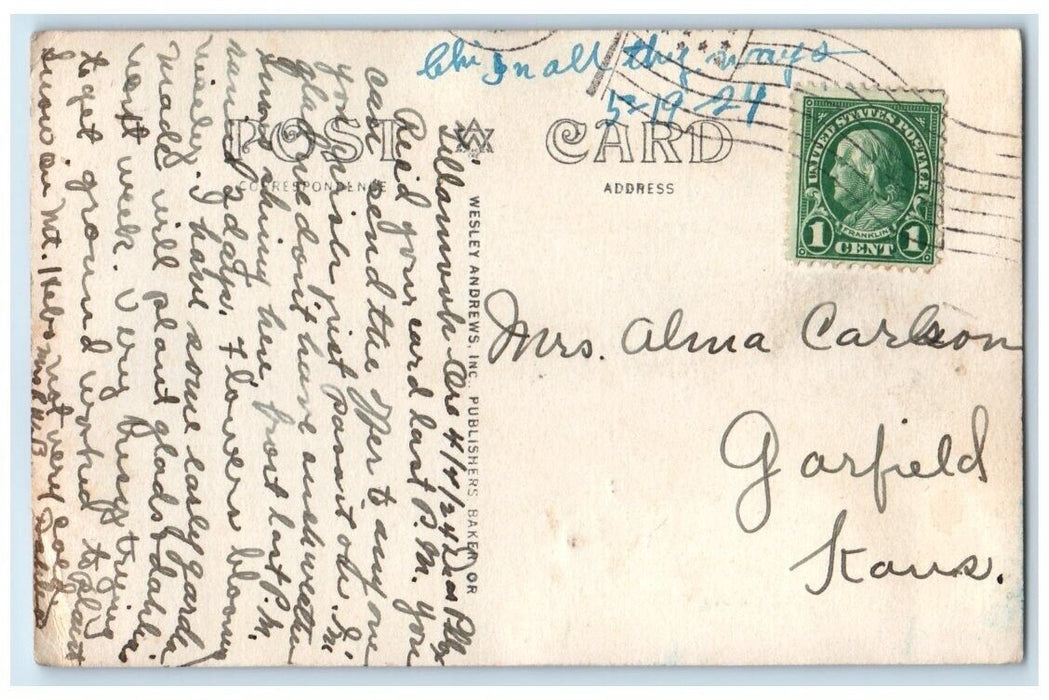 In all thy ways
5-19-24
POST CARD
CORRESPONDENCE
ADDRESS
WESLEY ANDREWS, INC., PUBLISHERS BAKER, OR
UNITED STATES POSTAGE
FRANKLIN
1 CENT 1
Mrs. Alma Carlson
Garfield
Kans.
Tillamook Ore 4/4/24 Dear
Recid your card last P.M. you
can send the to any one
you wish just pass it on. I'm
glad we don't have wether
here, frost last P.M.
and today. Flowers blooming
nicely. I have some early garden
made will plant glads & dahlia
next week. Very busy trying
to get ground worked to plant
snow on Mt. Hebo not very cold